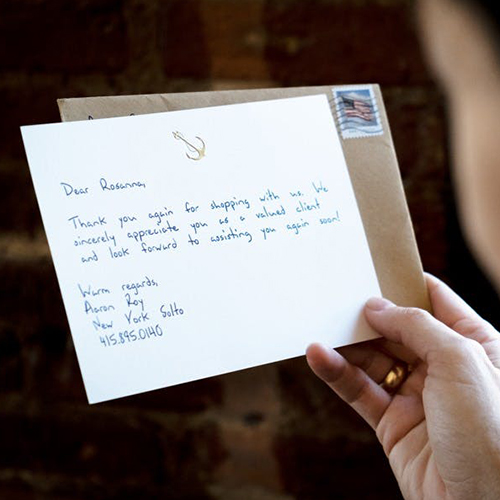 Dear Rosanna,
Thank you again for shopping with us. We
sincerely appreciate you as a valued client
and look forward to assisting you again soon!
Warm regards,
Aaron Roy
New York Solto
415.895.0140